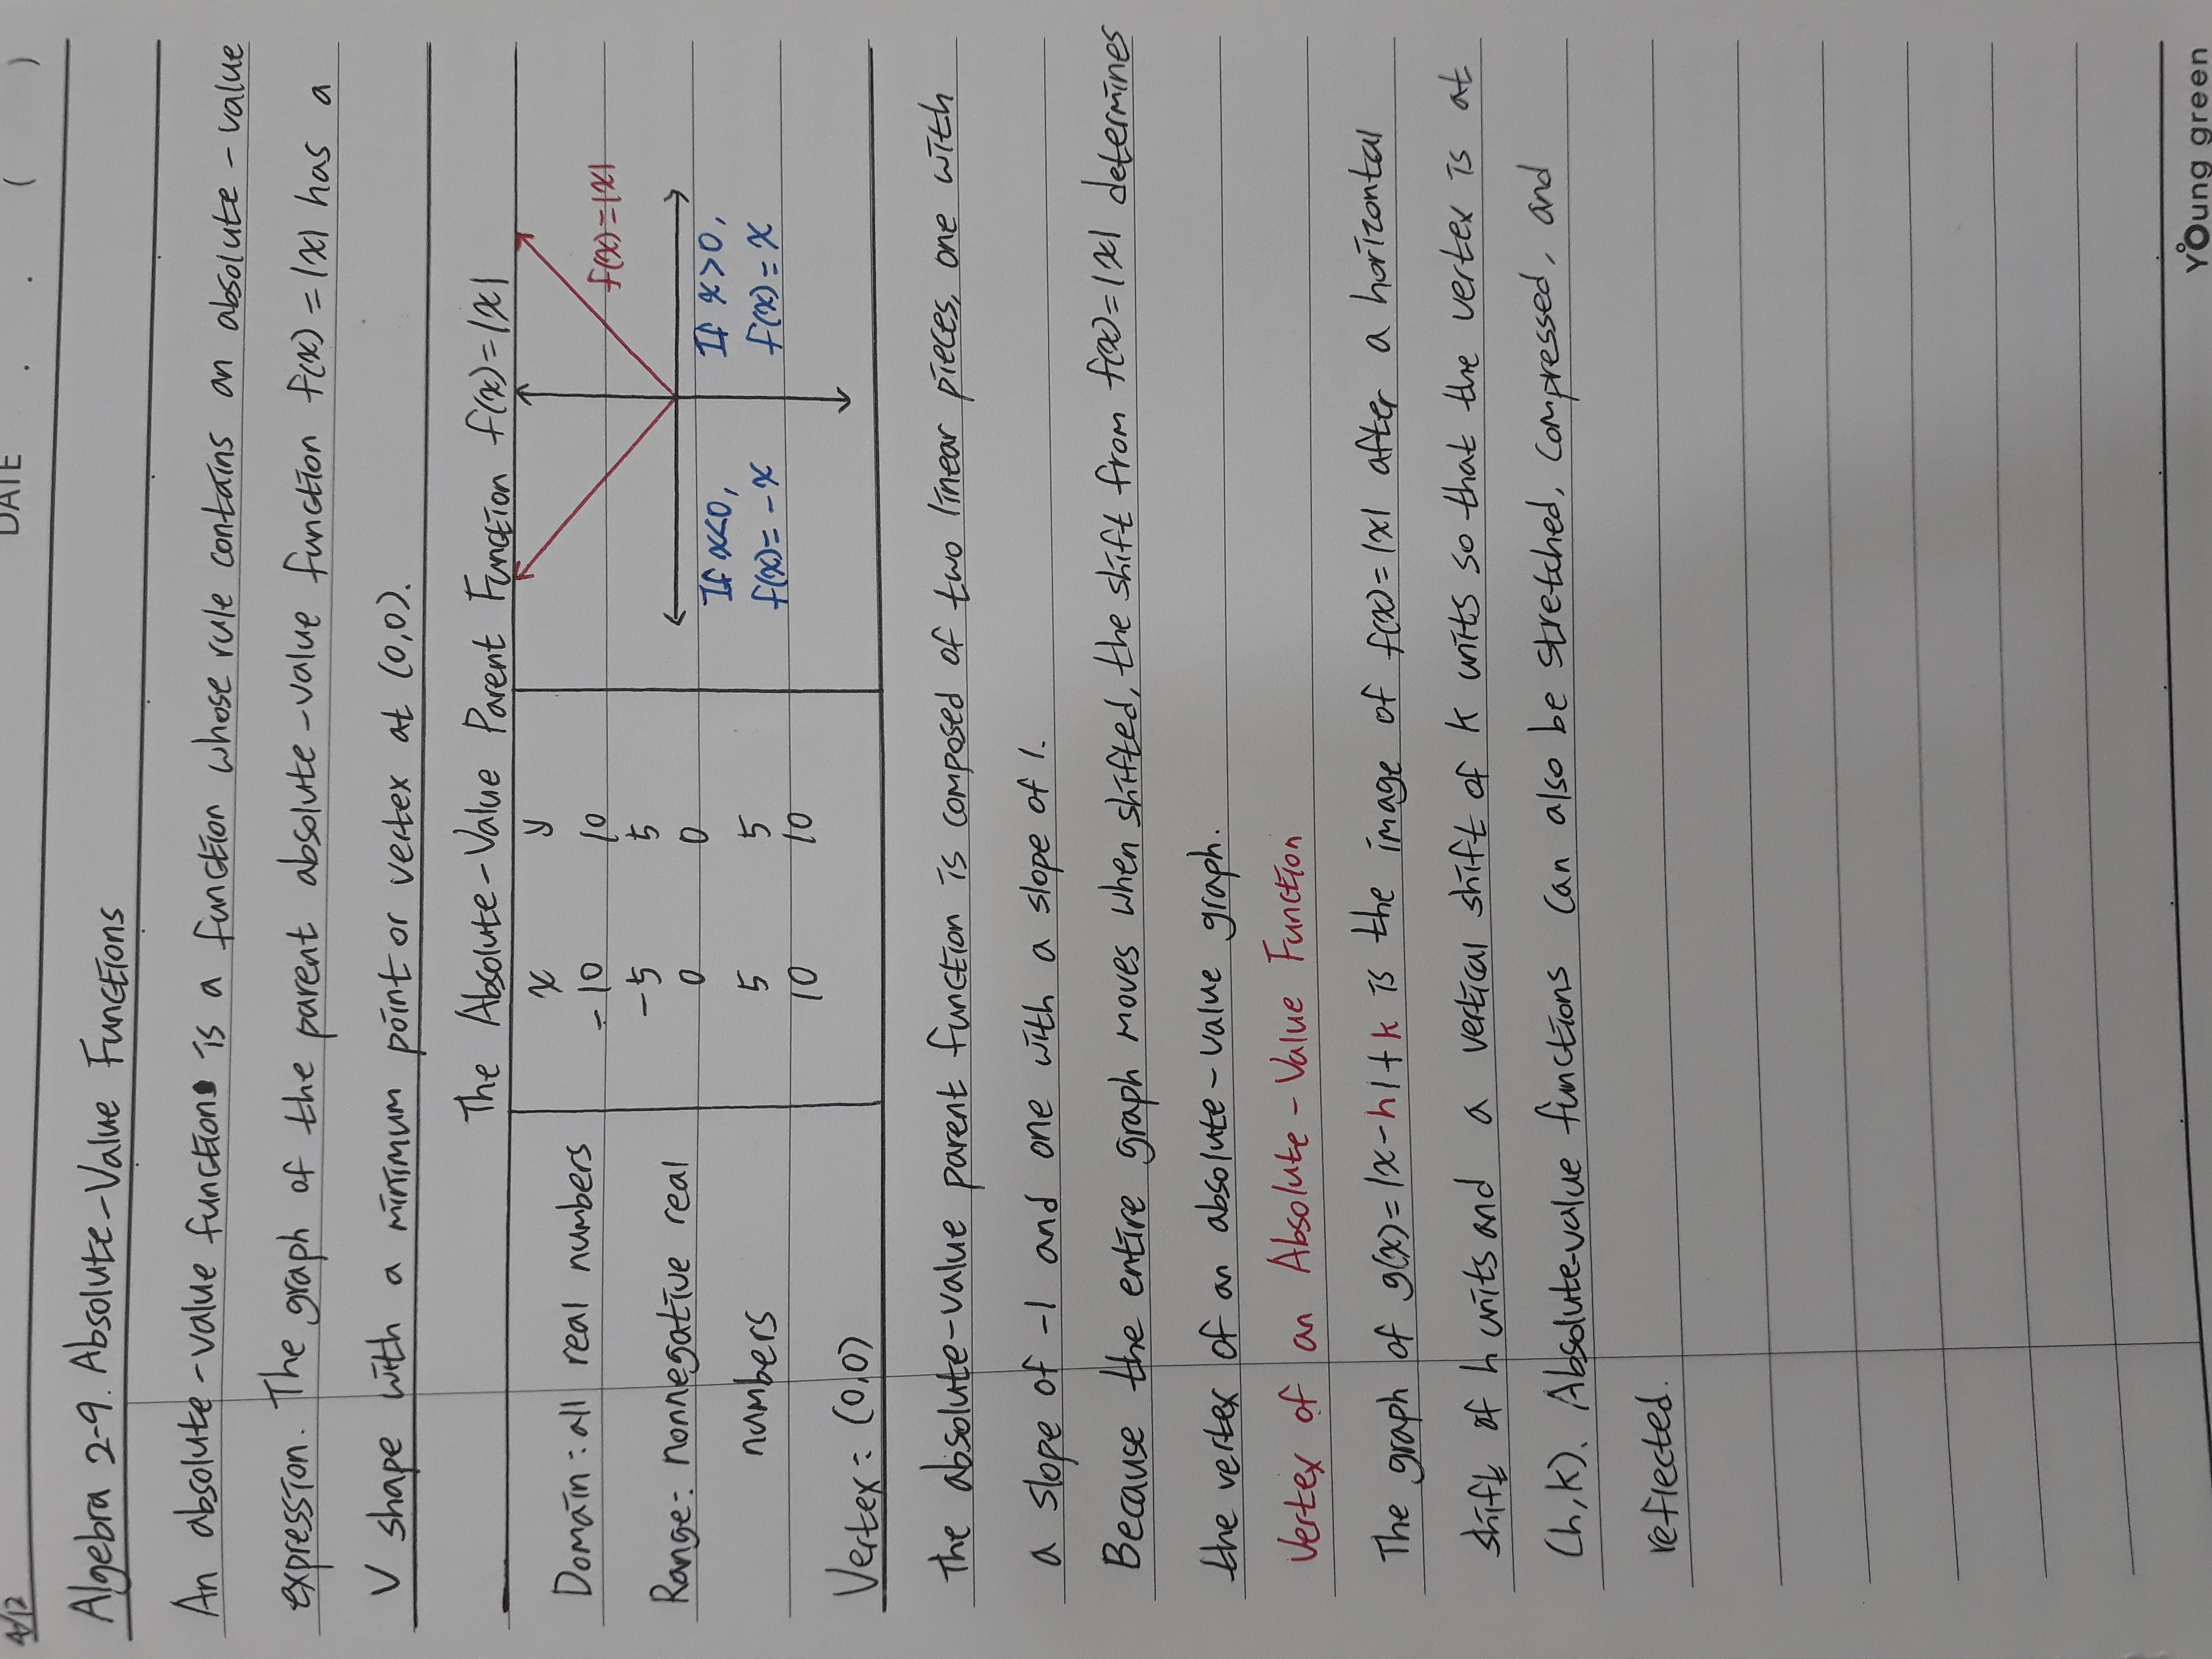 4/12
DATE . . ( )
Algebra 2-9. Absolute-Value Functions
An absolute-value functions is a function whose rule contains an absolute-value
expression. The graph of the parent absolute-value function f(x)=|x| has a
V shape with a minimum point or vertex at (0,0).
The Absolute-Value Parent Function f(x)=|x|
Domain: all real numbers
Range: nonnegative real
numbers
Vertex: (0,0)
x y
-10 10
-5 5
0 0
5 5
10 10
f(x)=|x|
If x<0,
f(x)=-x
If x>0,
f(x)=x
The absolute-value parent function is composed of two linear pieces, one with
a slope of -1 and one with a slope of 1.
Because the entire graph moves when shifted, the shift from f(x)=|x| determines
the vertex of an absolute-value graph.
Vertex of an Absolute-Value Function
The graph of g(x)=|x-h|+k is the image of f(x)=|x| after a horizontal
shift of h units and a vertical shift of k units so that the vertex is at
(h,k). Absolute-value functions can also be stretched, compressed, and
reflected.
Young green